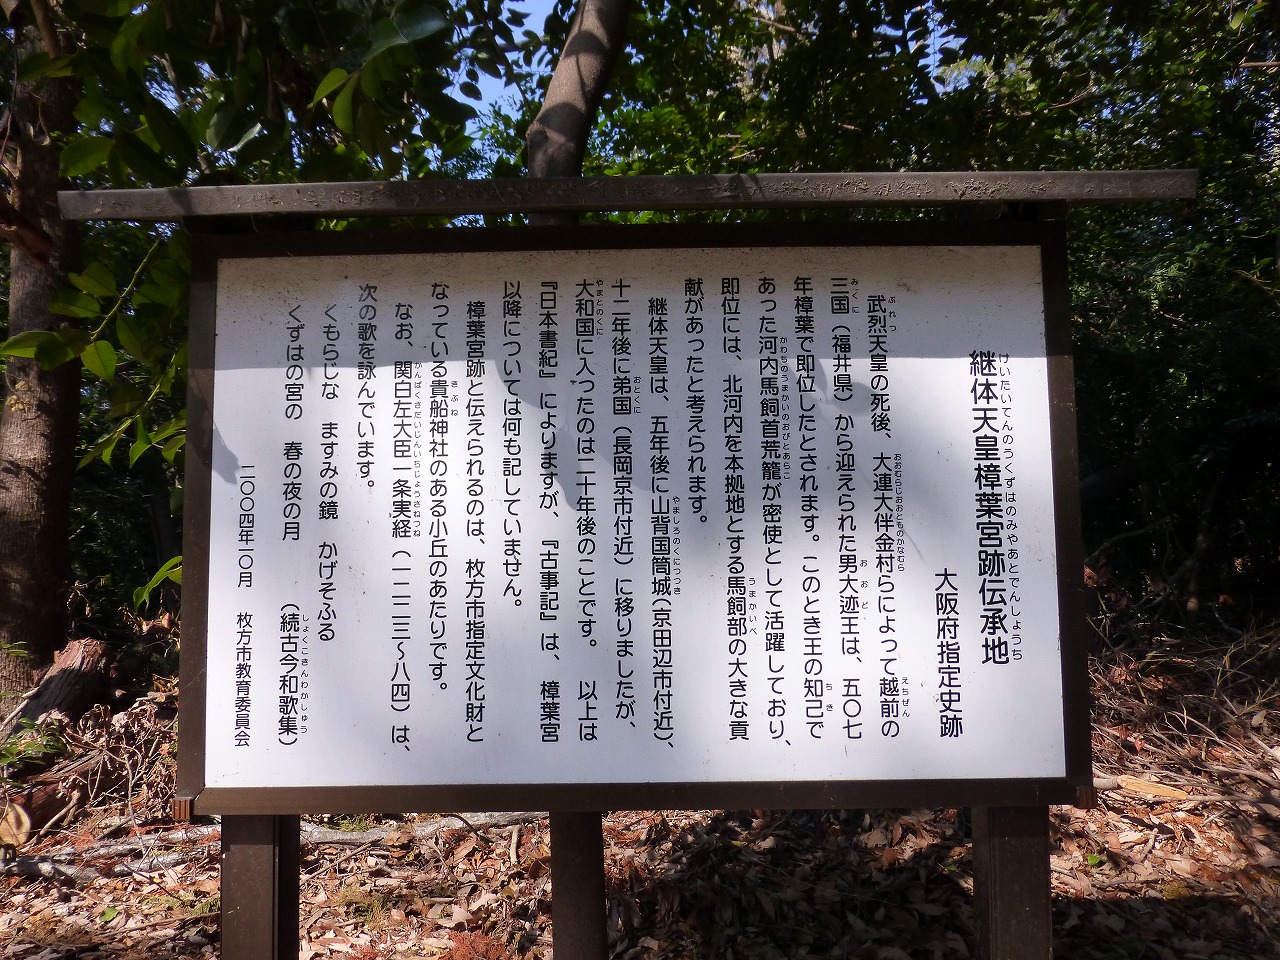 継体天皇樟葉宮跡伝承地
大阪府指定史跡
武烈天皇の死後、大連大伴金村らによって越前の
三国（福井県）から迎えられた男大迹王は、五〇七
年樟葉で即位したとされます。このとき王の知己で
あった河内馬飼首荒籠が密使として活躍しており、
即位には、北河内を本拠地とする馬飼部の大きな貢
献があったと考えられます。
継体天皇は、五年後に山背国筒城（京田辺市付近）、
十二年後に弟国（長岡京市付近）に移りましたが、
大和国に入ったのは二十年後のことです。 以上は
『日本書紀』によりますが、『古事記』は、樟葉宮
以降については何も記していません。
樟葉宮跡と伝えられるのは、枚方市指定文化財と
なっている貴船神社のある小丘のあたりです。
なお、関白左大臣一条実経（一二二三～八四）は、
次の歌を詠んでいます。
くもらじな ますみの鏡 かげそふる
くずはの宮の 春の夜の月 （続古今和歌集）
二〇〇四年一〇月 枚方市教育委員会